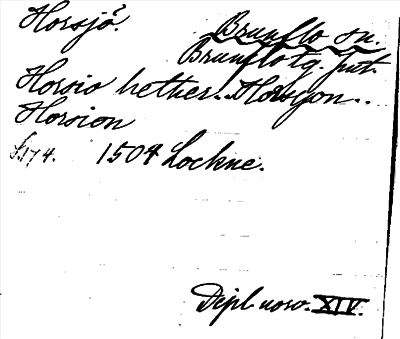 Horsjö? Brunflo sn.
Brunflo tg. Jmt.
Horsio hether.. Horsyon..
Horsion
s. 174. 1504 Lockne.
Dipl. norv. XIV.